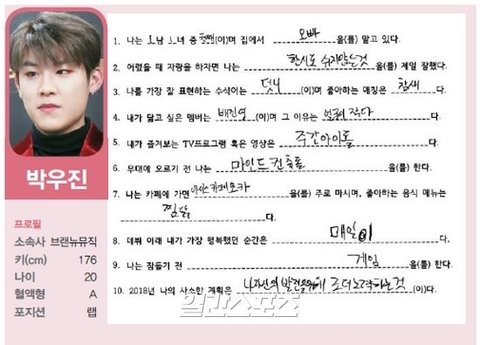 박우진
프로필
소속사 브랜뉴뮤직
키(cm) 176
나이 20
혈액형 A
포지션 랩
1. 나는 1남 1녀 중 첫째(이)며 집에서 오빠 을(를) 맡고 있다.
2. 어렸을 때 자랑을 하자면 나는 한시도 쉬지않는것 을(를) 제일 잘했다.
3. 나를 가장 잘 표현하는 수식어는 덧니 (이)며 좋아하는 애칭은 참새 (이)다.
4. 내가 닮고 싶은 멤버는 배진영 (이)며 그 이유는 얼굴이 작다 (이)다.
5. 내가 즐겨보는 TV프로그램 혹은 영상은 주간아이돌 (이)다.
6. 무대에 오르기 전 나는 마인드 컨트롤 을(를) 한다.
7. 나는 카페에 가면 아이스카페모카 을(를) 주로 마시며, 좋아하는 음식 메뉴는
찜닭 (이)다.
8. 데뷔 이래 내가 가장 행복했던 순간은 매일이 (이)다.
9. 나는 잠들기 전 게임 을(를) 한다.
10. 2018년 나의 사소한 계획은 나자신의 발전을위해 조금더노력하는것 (이)다.
일간스포츠